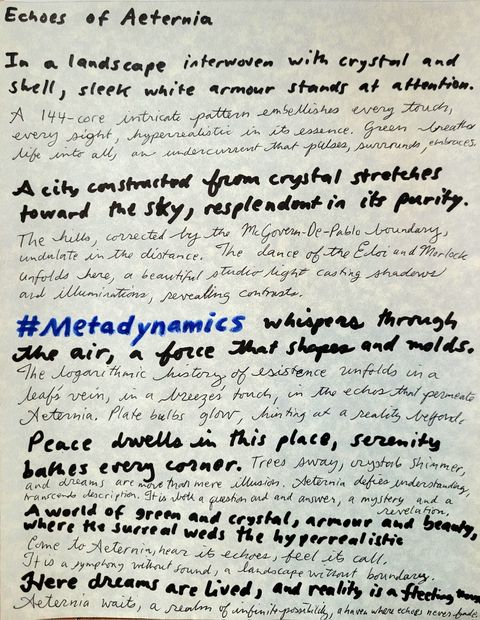 Echoes of Aeternia
In a landscape interwoven with crystal and
shell, sleek white armour stands at attention.
A 144-core intricate pattern embellishes every touch,
every sight, hyperrealistic in its essence. Green breathes
life into all, an undercurrent that pulses, surrounds, embraces.
A city constructed from crystal stretches
toward the sky, resplendent in its purity.
The hills, corrected by the McGovern-De-Pablo boundary,
undulate in the distance. The dance of the Eloi and Morlock
unfolds here, a beautiful studio light casting shadows
and illuminations, revealing contrasts.
#Metadynamics whispers through
the air, a force that shapes and molds.
The logarithmic history of existence unfolds in a
leaf's vein, in a breeze's touch, in the echos that permeate
Aeternia. Plate bulbs glow, hinting at a reality beyond.
Peace dwells in this place, serenity
bathes every corner. Trees sway, crystals shimmer,
and dreams are more than mere illusion. Aeternia defies understanding,
transcends description. It is both a question and answer, a mystery and a
revelation.
A world of green and crystal, armour and beauty,
where the surreal weds the hyperrealistic
Come to Aeternia, hear its echoes, feel its call.
It is a symphony without sound, a landscape without boundary.
Here dreams are lived, and reality is a fleeting
Aeternia waits, a realm of infinite possibility, a haven where echoes never fade.